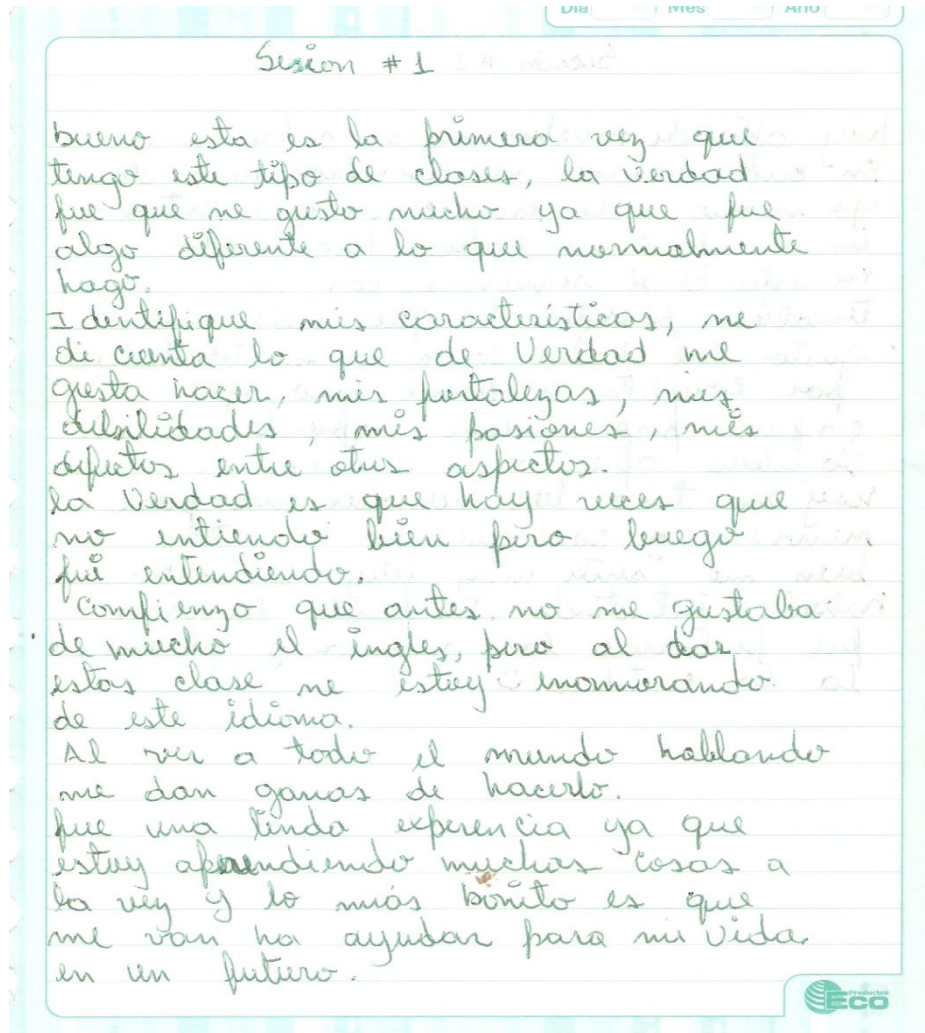 Dia Mes Año
Sesion # 1
bueno esta es la primera vez que
tengo este tipo de clases, la verdad
fue que me gusto mucho ya que fue
algo diferente a lo que normalmente
hago.
Identifique mis caracteristicas, me
di cuenta lo que de Verdad me
gusta hacer, mis fortalezas, mis
debilidades, mis pasiones, mis
defectos entre otros aspectos.
la Verdad es que hay veces que
no entiendo bien pero luego
fui entendiendo.
Comfienzo que antes no me gustaba
de mucho el ingles, pero al dar
estas clase me estoy inamorando
de este idioma.
Al ver a todo el mundo hablando
me dan ganas de hacerlo.
fue una linda experencia ya que
estoy aprendiendo muchas cosas a
la vez y lo más bonito es que
me van ha ayudar para mi vida
en un futuro.
Productos
ECO